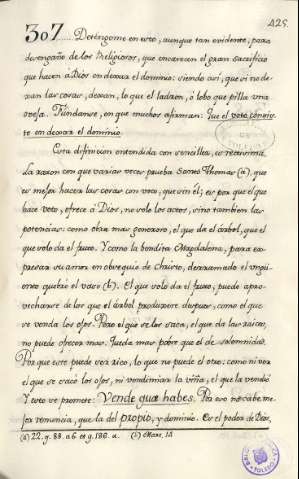 425.
307 Detengome en esto, aunque tan evidente, para
desengaño de los Religiosos, que encarecen el gran sacrificio
que hacen à Dios en dexar el dominio: siendo asi, que si no de-
xan las cosas, dexan, lo que el ladron, ò lobo que pilla una
oveja. Fundanse, en que muchos afirman: Que el voto consis-
te en dexar el dominio.
Esta difinicion entendida con sencillez, es
La razon con que varias veces prueba Santo Thomas (a), que
es mejor hacer las cosas con voto, que sin èl; es por que el que
hace voto, ofrece à Dios, no solo los actos, sino tambien las
potencias: como otra mas generoso, el que da el arbol, que el
que solo da el fruto. Y como la bendita Magdalena, para ex-
presar su amor en obsequio de Christo, derramado el ungü-
ento quebrò el vaso (b). El que solo da el fruto, puede apro-
vecharse de los que el arbol produxere despues, como el que
se venda los ojos. Pero el que se los saca, el que da las raices,
no puede ofrecer mas. Queda mas pobre que el de
Por que este puede ser rico, lo que no puede el otro: como ni ver
el que se sacò los ojos, ni vendimiar la viña, el que la vendiò
Y esto se promete: Vende quæ habes. Por eso no cabe me-
jor renuncia, que la del propio, y dominio. Es el poder de Dios,
(a) 22. q. 88. a. 6 et q. 186. a. (b) Marc. 14